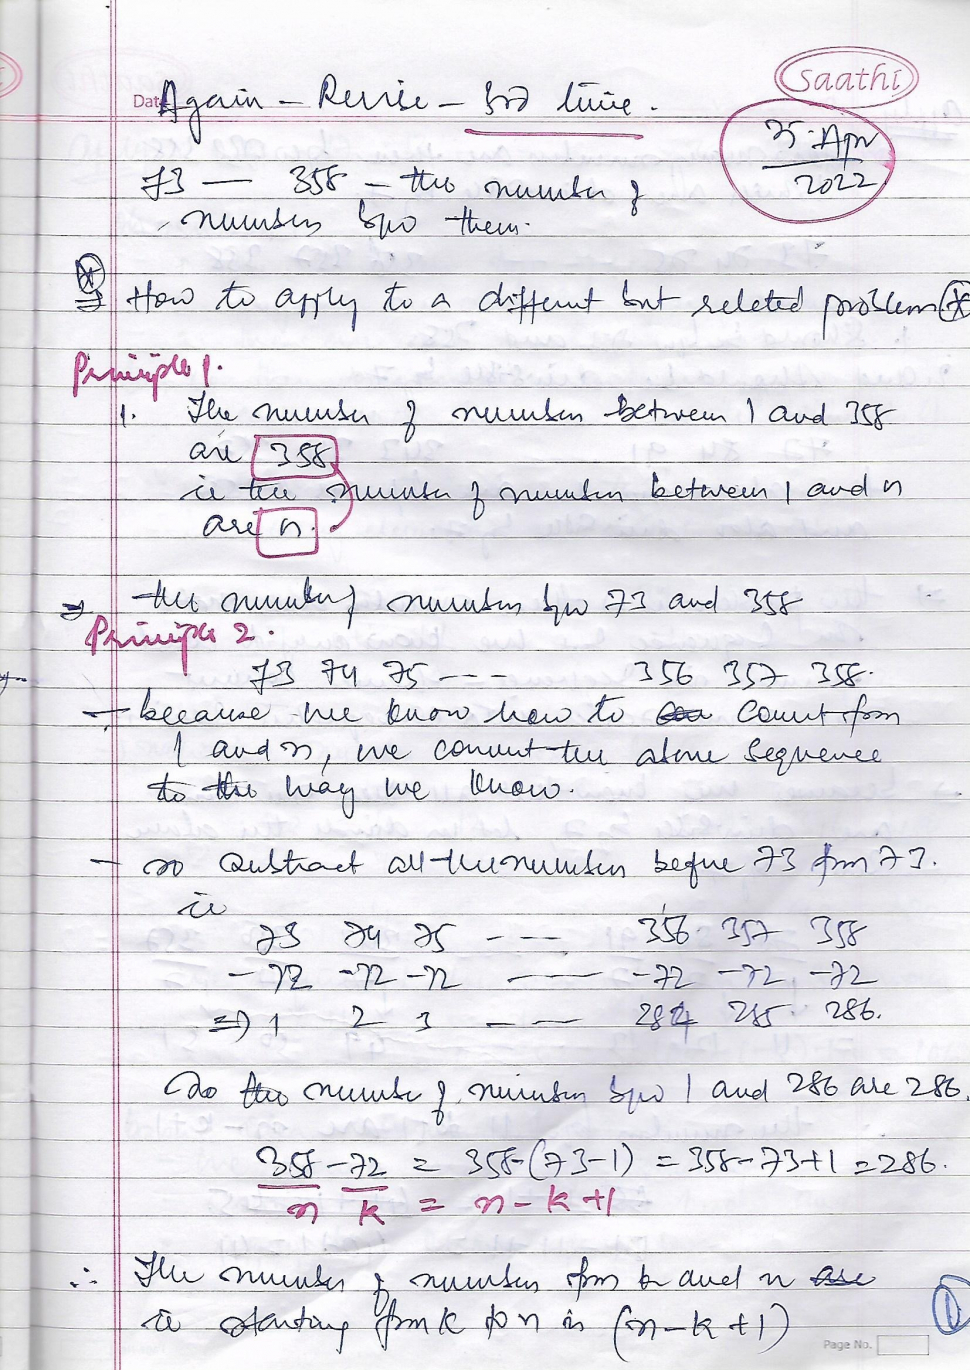 Saathi
Date
Again - Revise - 3rd time.
Apr
2022
73 — 358 - the number of
numbers bw them.
⇒ How to apply to a different but related problem
Principle 1.
1. The number of numbers between 1 and 358
are 358
ie the number of numbers between 1 and n
are n.
⇒ the number of numbers bw 73 and 358
Principle 2.
73 74 75 --- 356 357 358.
- because we know how to count from
1 and n, we convert the above sequence
to the way we know.
- so subtract all the numbers before 73 from 73.
ie
73 74 75 --- 356 357 358
-72 -72 -72 —— -72 -72, -72
⇒ 1 2 3 —— 284 285 286.
So the number of numbers bw 1 and 286 are 286.
358-72 = 358-(73-1) = 358-73+1 = 286.
n k = n-k+1
∴ The number of numbers from k and n are
ie starting from k to n is (n-k+1)
1
Page No.